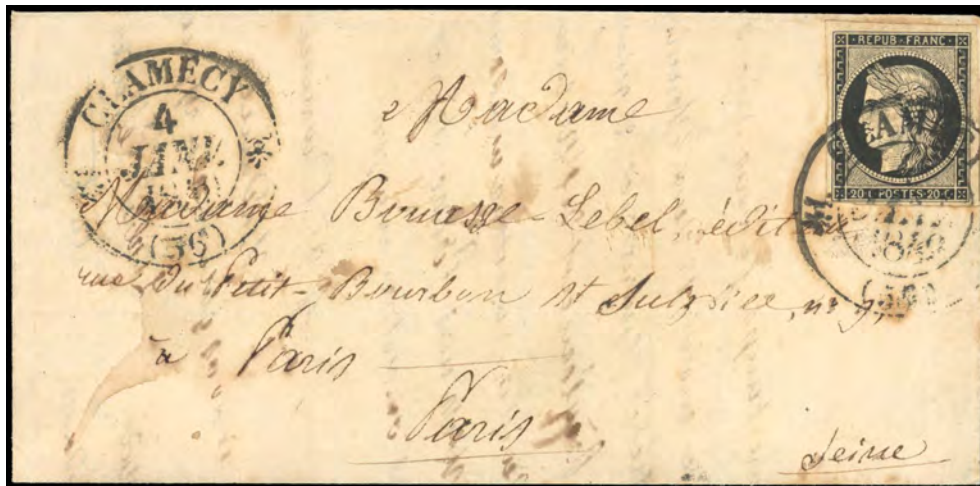 CLAMECY
4
JANV.
(56)
REPUB·FRANC
20 c POSTES 20 c
Madame
Madame Bouasse-Lebel, édit
rue du Petit-Bourbon St Sulpice, n° 9,
à Paris
Paris
Seine